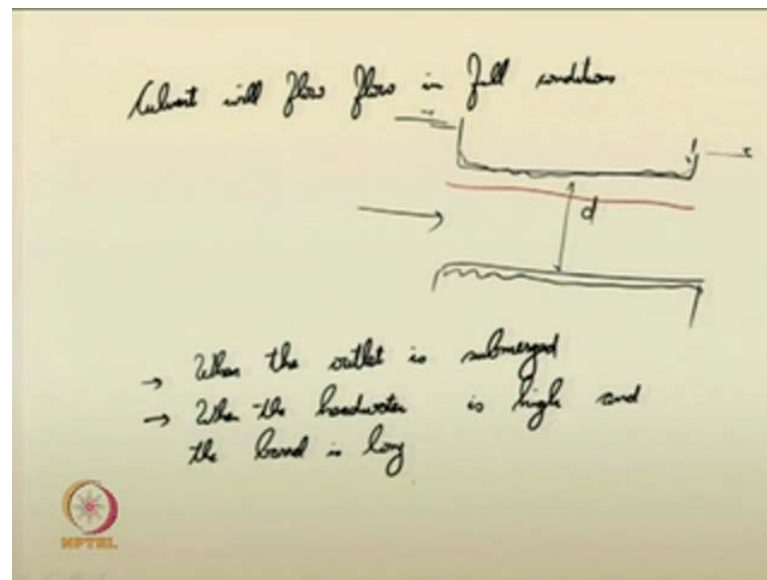 Culvert will flow flow in full conditions
d
→ When the outlet is submerged
→ When the headwater is high and
the barrel is long
NPTEL